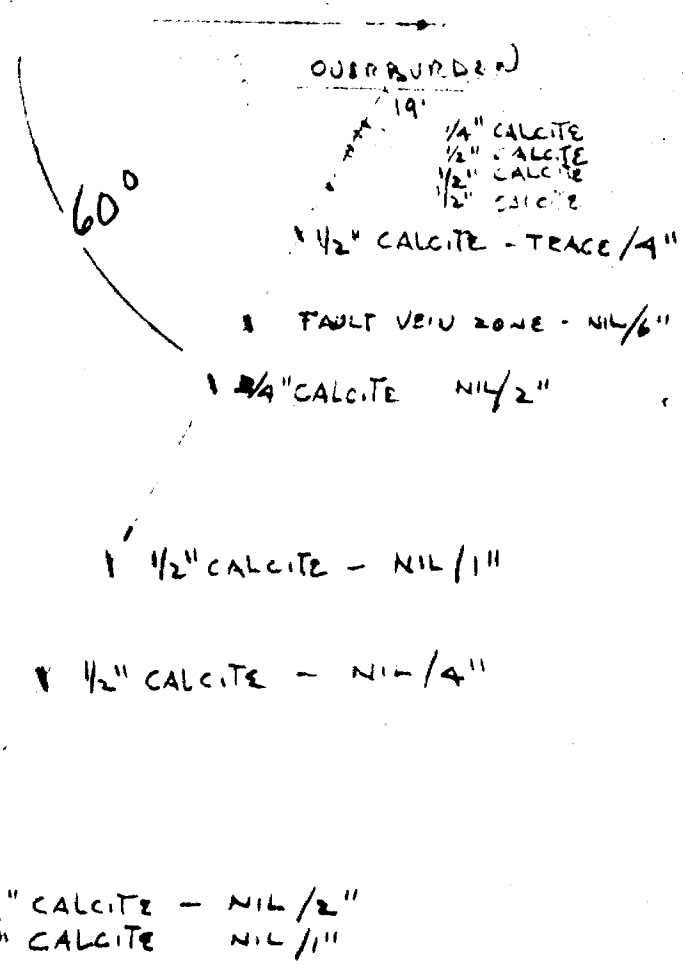 OVERBURDEN
19'
1/4" CALCITE
1/2" CALCITE
1/2" CALCITE
1/2" CALCITE
60°
1/2" CALCITE - TRACE/4"
FAULT VEIN ZONE - NIL/6"
3/4" CALCITE NIL/2"
1/2" CALCITE - NIL/1"
1/2" CALCITE - NIL/4"
" CALCITE - NIL/2"
" CALCITE NIL/1"